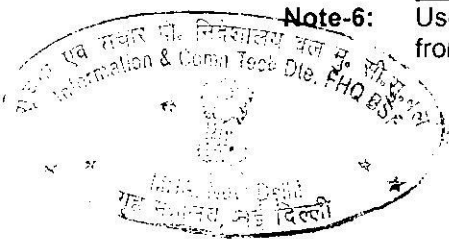 Note-6: Us
fro
एवं संचार प्रौ. निदेशालय बल मु.
Information & Comn Tech Dte, FHQ BSF
MHA, New Delhi
गृह मंत्रालय, नई दिल्ली